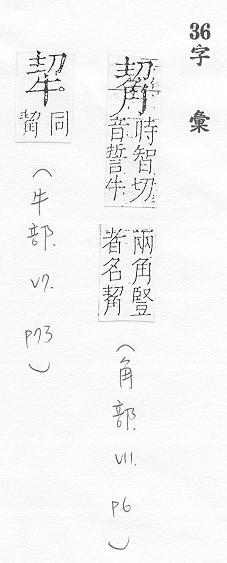 36 字彙
觢
時智切
音誓牛
兩角豎
者名觢
(角部. V11. p6)
同觢
(牛部. V7. p73)